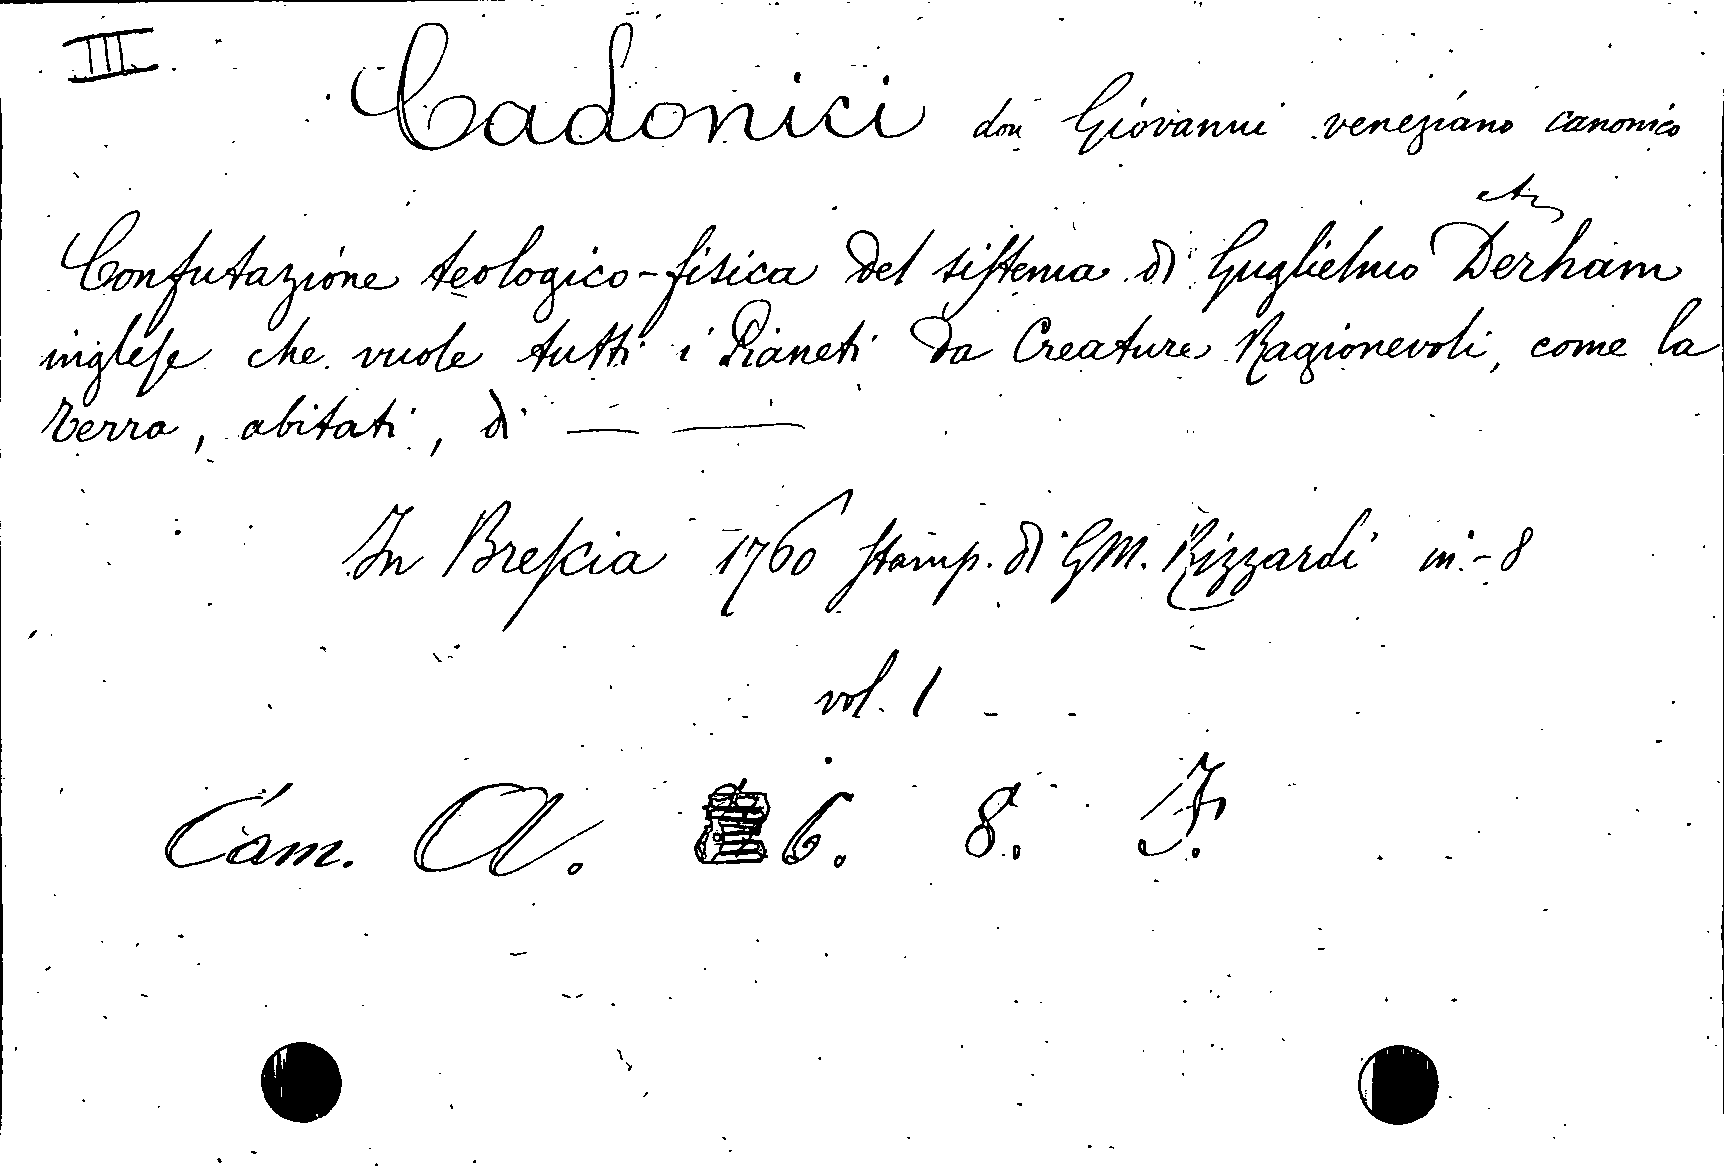 III.
Cadonici don Giovanni veneziano canonico
Confutazione teologico-fisica del siſtema di Guglielmo Derham
ingleſe che vuole tutti i Pianeti da Creature Ragionevoli, come la
terra, abitati, di — —
In Breſcia 1760 ſtamp. di G M. Rizzardi in-8
vol. 1
Cam. A. 6. 8. F.